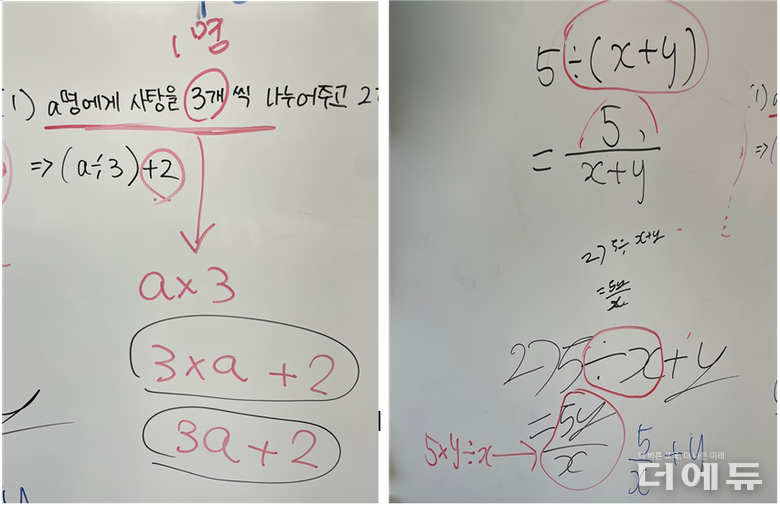 1명
(1) a명에게 사탕을 3개 씩 나누어주고 2
=> (a÷3)+2
a×3
3×a+2
3a+2
5÷(x+y)
= 5/x+y
(1) a
=> (
2) 5÷x+y
= 5y/x
2) 5÷x+y
= 5y/x
5×y÷x →
5/x + y
더 바른 교육, 더 나은 미래
더에듀